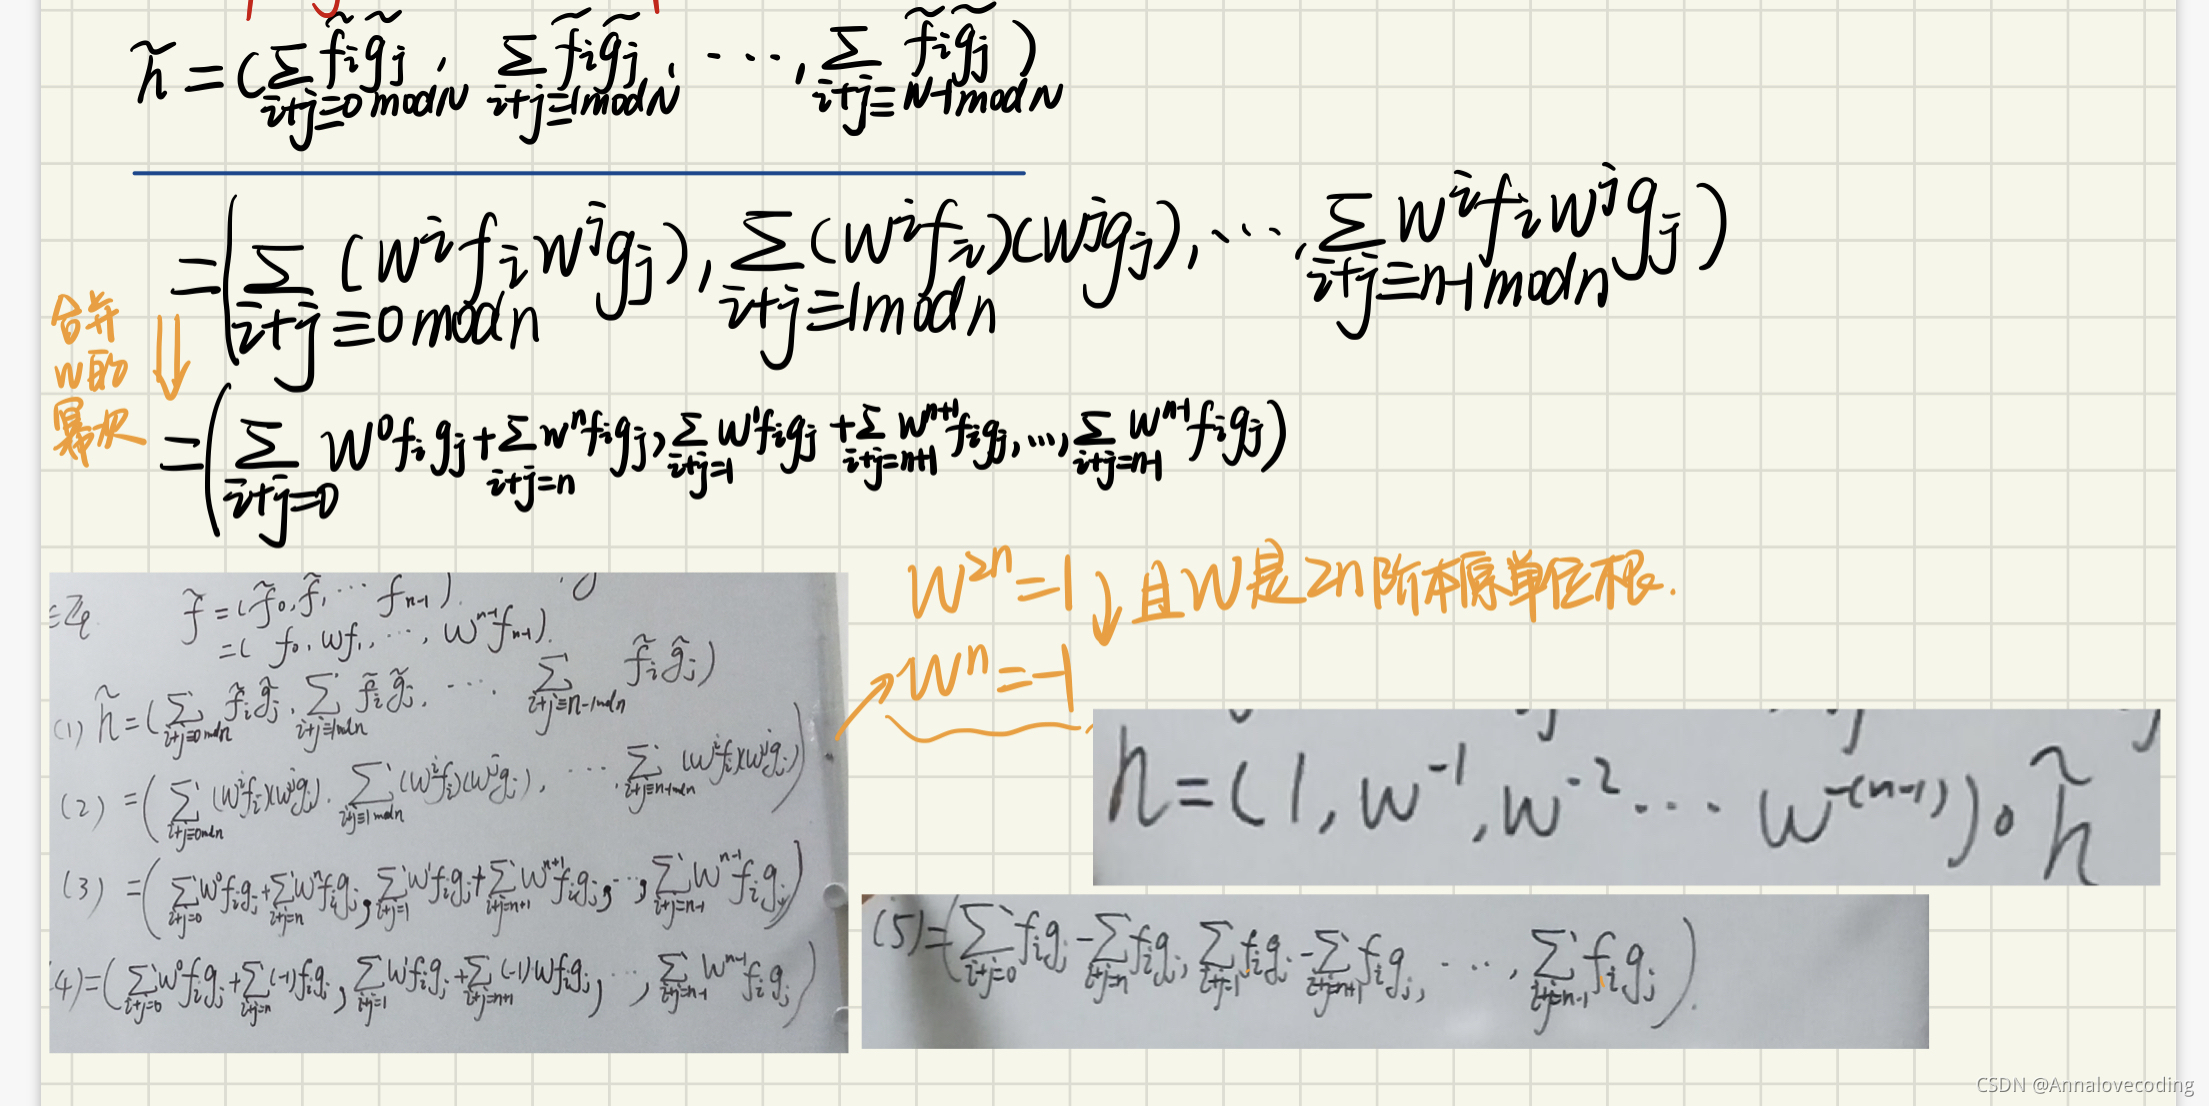 h̃ = (∑_{i+j≡0 mod N} f̃_i g̃_j, ∑_{i+j≡1 mod N} f̃_i g̃_j, ⋯, ∑_{i+j≡N-1 mod N} f̃_i g̃_j)
= (∑_{i+j≡0 mod n} (w^i f_i w^j g_j), ∑_{i+j≡1 mod n} (w^i f_i)(w^j g_j), ⋯, ∑_{i+j≡n-1 mod n} w^i f_i w^j g_j)
合并
w的
幂次
= (∑_{i+j=0} w^0 f_i g_j + ∑_{i+j=n} w^n f_i g_j, ∑_{i+j=1} w^1 f_i g_j + ∑_{i+j=n+1} w^{n+1} f_i g_j, ⋯, ∑_{i+j=n-1} w^{n-1} f_i g_j)
w^{2n} = 1 且w是2n阶本原单位根.
w^n = -1
∈Z_q f̃ = (f̃_0, f̃_1 ⋯ f_{n-1}).
= (f_0, wf_1, ⋯, w^{n-1} f_{n-1}).
(1) h̃ = (∑_{i+j≡0 mod n} f̃_i g̃_j, ∑_{i+j≡1 mod n} f̃_i g̃_j, ⋯. ∑_{i+j≡n-1 mod n} f̃_i g̃_j)
(2) = (∑_{i+j≡0 mod n} (w^i f_i)(w^j g_j), ∑_{i+j≡1 mod n} (w^i f_i)(w^j g_j), ⋯. ∑_{i+j≡n-1 mod n} (w^i f_i)(w^j g_j))
(3) = (∑_{i+j=0} w^0 f_i g_j + ∑_{i+j=n} w^n f_i g_j, ∑_{i+j=1} w^1 f_i g_j + ∑_{i+j=n+1} w^{n+1} f_i g_j, ⋯, ∑_{i+j=n-1} w^{n-1} f_i g_j)
(4) = (∑_{i+j=0} w^0 f_i g_j + ∑_{i+j=n} (-1) f_i g_j, ∑_{i+j=1} w^1 f_i g_j + ∑_{i+j=n+1} (-1) w f_i g_j, ⋯, ∑_{i+j=n-1} w^{n-1} f_i g_j)
h = (1, w^{-1}, w^{-2} ⋯ w^{-(n-1)}) ∘ h̃
(5) = (∑_{i+j=0} f_i g_j - ∑_{i+j=n} f_i g_j, ∑_{i+j=1} f_i g_j - ∑_{i+j=n+1} f_i g_j, ⋯, ∑_{i+j=n-1} f_i g_j).
CSDN @Annalovecoding